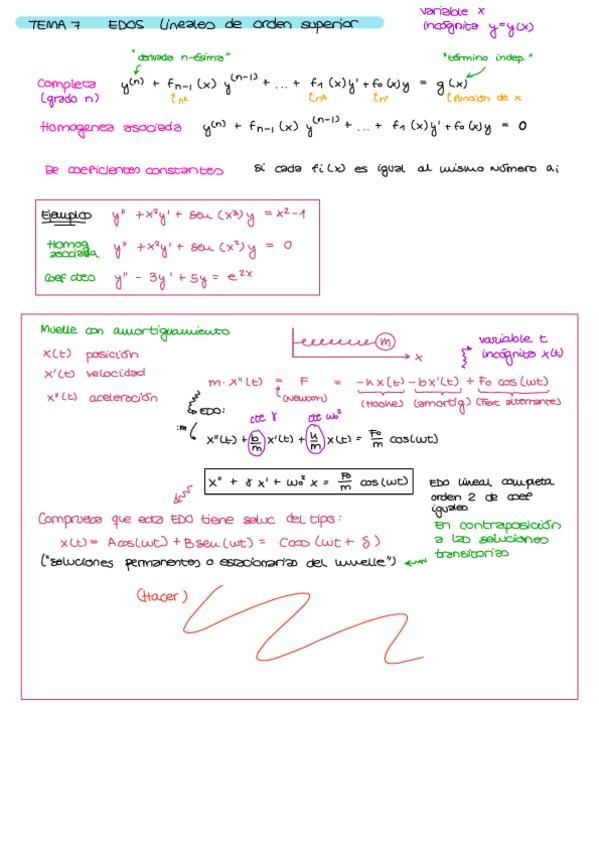 TEMA 7 EDOS lineales de orden superior
variable x
incógnita y=y(x)
"derivada n-ésima"
"término indep."
Completa y⁽ⁿ⁾ + fₙ₋₁(x) y⁽ⁿ⁻¹⁾ + ... + f₁(x)y' + f₀(x)y = g(x)
(grado n)
función de x
Homogenea asociada y⁽ⁿ⁾ + fₙ₋₁(x) y⁽ⁿ⁻¹⁾ + ... + f₁(x)y' + f₀(x)y = 0
De coeficientes constantes Si cada fi(x) es igual al mismo número ai
Ejemplo y'' + x²y' + sen(x³)y = x²-1
Homog asociada y'' + x²y' + sen(x²)y = 0
coef ctes y'' - 3y' + 5y = e²ˣ
Muelle con amortiguamiento
x(t) posición
x'(t) velocidad
x''(t) aceleración
m
x
variable t
incógnita x(t)
m·x''(t) = F = -kx(t) -bx'(t) + F₀ cos(ωt)
(Newton) (Hooke) (amortig) (Fext alternante)
EDO: cte γ cte ω₀²
:m x''(t) + b/m x'(t) + k/m x(t) = F₀/m cos(ωt)
x'' + γx' + ω₀² x = F₀/m cos(ωt)
EDO lineal completa
orden 2 de coef
iguales
Comprueba que esta EDO tiene soluc del tipo:
x(t) = Acos(ωt) + Bsen(ωt) = Ccos(ωt + δ)
("soluciones permanentes o estacionarias del muelle")
En contraposición
a las soluciones
transitorias
(Hacer)